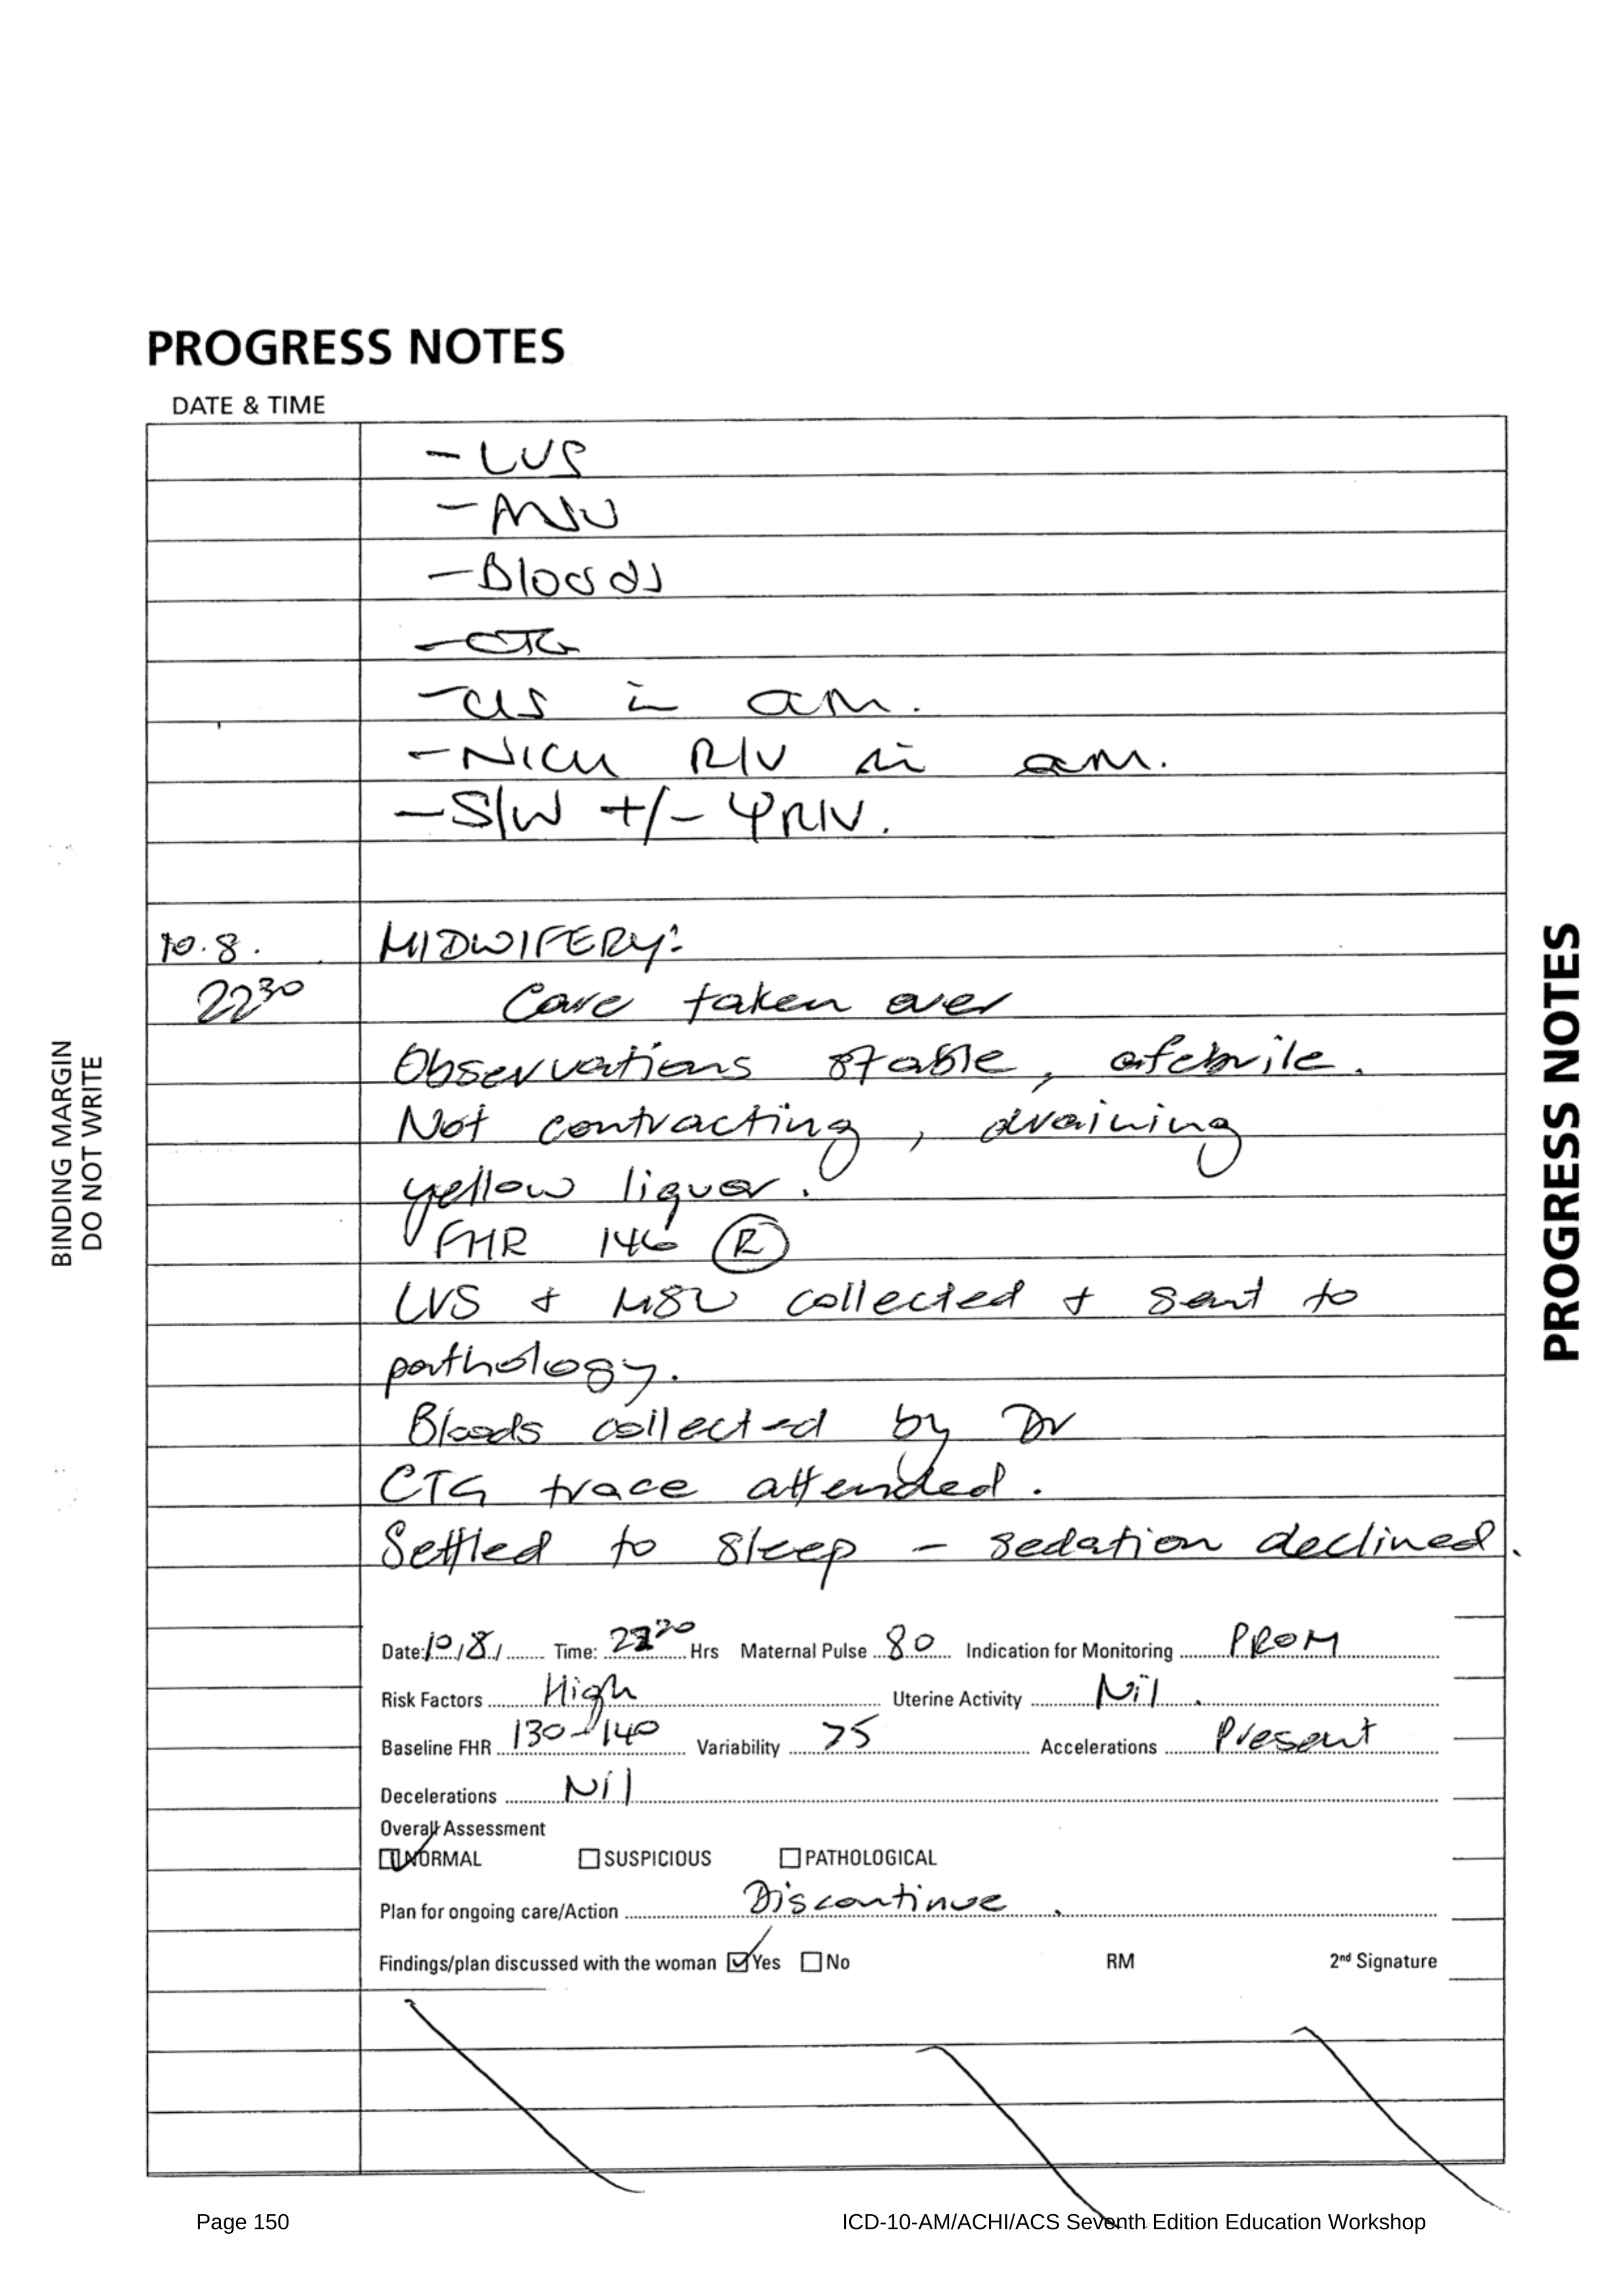 PROGRESS NOTES
DATE & TIME
- LVS
- MSU
- Bloods
- CTG
- u/s in am.
- NICU R/V in am.
- S/W +/- ψ R/V.
10.8. MIDWIFERY:
2230 Care taken over
Observations stable, afebrile.
Not contracting, draining
yellow liquor.
FHR 146 (R)
LVS + MSU collected + sent to
pathology.
Bloods collected by Dr
CTG trace attended.
Settled to sleep - sedation declined.
Date: 10/8/ Time: Hrs Maternal Pulse 80 Indication for Monitoring PROM
Risk Factors High Uterine Activity Nil.
Baseline FHR 130-140 Variability >5 Accelerations Present
Decelerations Nil
Overall Assessment
NORMAL SUSPICIOUS PATHOLOGICAL
Plan for ongoing care/Action Discontinue.
Findings/plan discussed with the woman Yes No RM 2nd Signature
BINDING MARGIN
DO NOT WRITE
PROGRESS NOTES
Page 150 ICD-10-AM/ACHI/ACS Seventh Edition Education Workshop